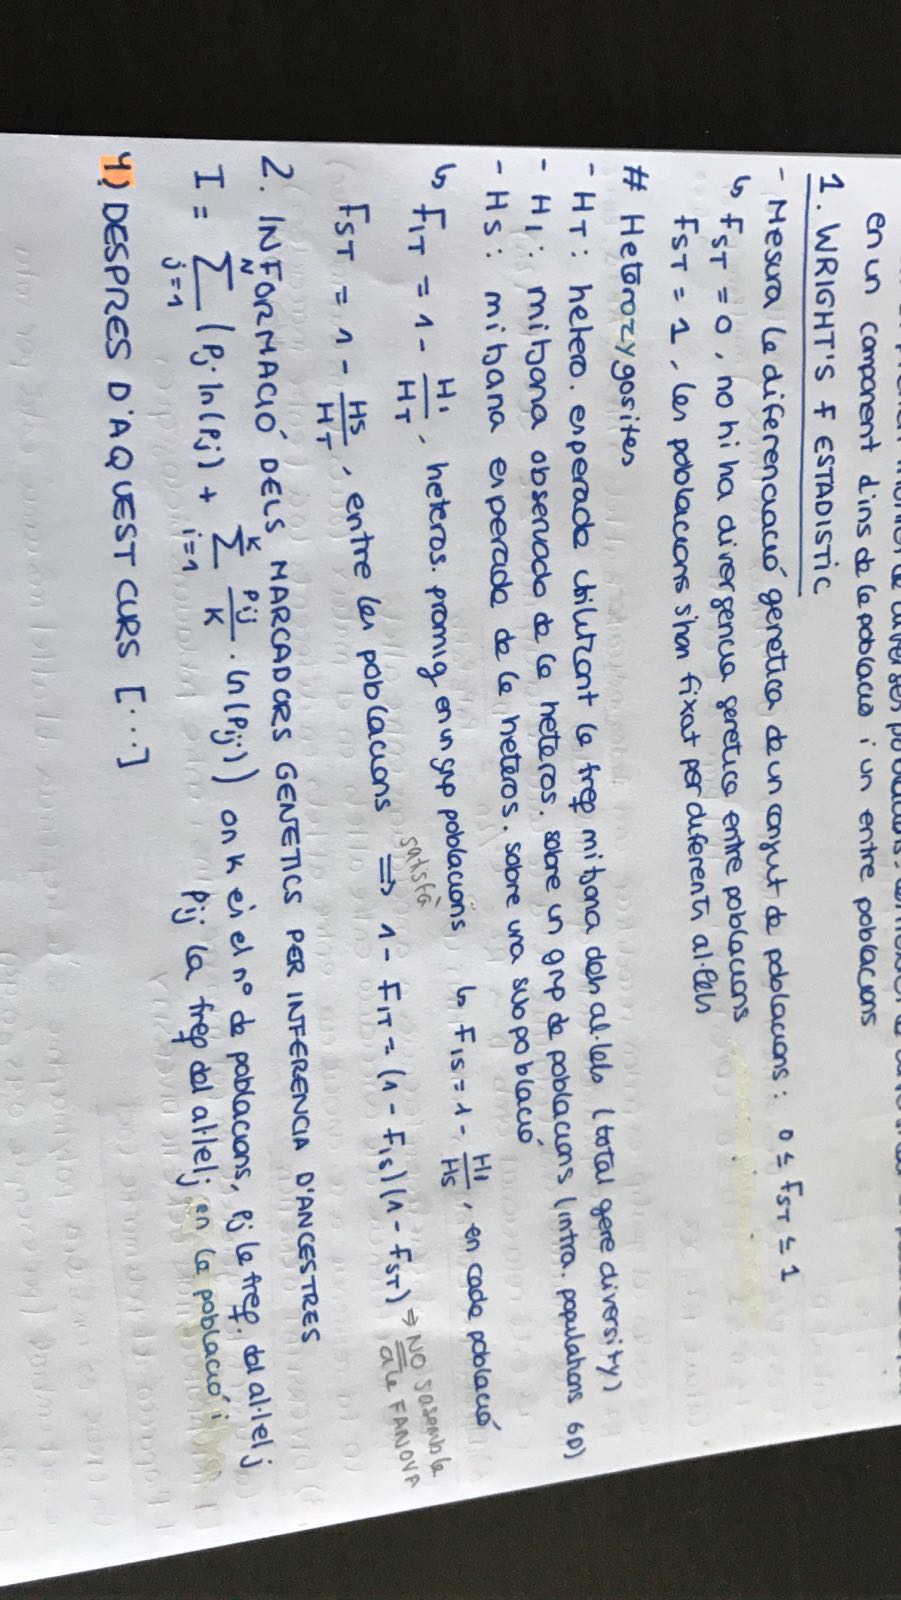 en un component dins de la població i un entre poblacions
1. WRIGHT'S F ESTADISTIC
- Mesura la diferenciació genetica de un conjut de poblacions: 0 ≤ FST ≤ 1
↳ FST = 0, no hi ha divergencia genetica entre poblacions
FST = 1, les poblacions s'han fixat per diferents al·lels
# Heterozygosites
- HT: hetero. esperada utilitzant la freq mitjana dels al·lels (total gene diversity)
- HI: mitjana observada de la heteros. sobre un grup de poblacions (intra. populations GD)
- HS: mitjana esperada de la heteros. sobre una subpoblació
↳ FIT = 1 - HI/HT, heteros. promig en un grup poblacions ↳ FIS = 1 - HI/HS, en cada població
FST = 1 - HS/HT, entre les poblacions satisfà ⟹ 1 - FIT = (1 - FIS)(1 - FST) ⇒ NO sasembla a la FANOVA
2. INFORMACIÓ DELS MARCADORS GENETICS PER INFERENCIA D'ANCESTRES
I = ∑_{j=1}^{N} (Pj·ln(Pj) + ∑_{i=1}^{K} Pij/K · ln(Pij)) on K es el nº de poblacions, Pj la freq. del al·lel j
Pij la freq del al·lel j en la població i
4) DESPRES D'AQUEST CURS [...]